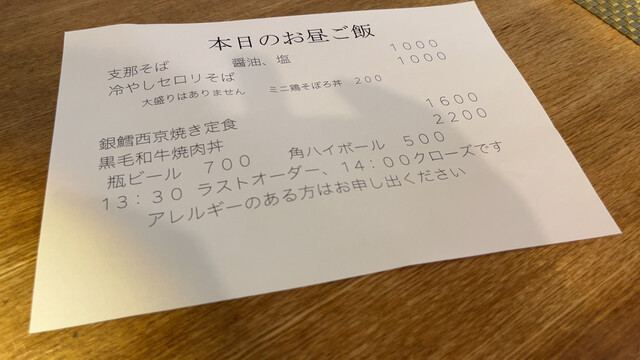 本日のお昼ご飯
支那そば　醤油、塩　１０００
冷やしセロリそば　１０００
大盛りはありません　ミニ鶏そぼろ丼　２００
銀鱈西京焼き定食　１６００
黒毛和牛焼肉丼　２２００
瓶ビール　７００　角ハイボール　５００
１３：３０ ラストオーダー、１４：００クローズです
アレルギーのある方はお申し出ください